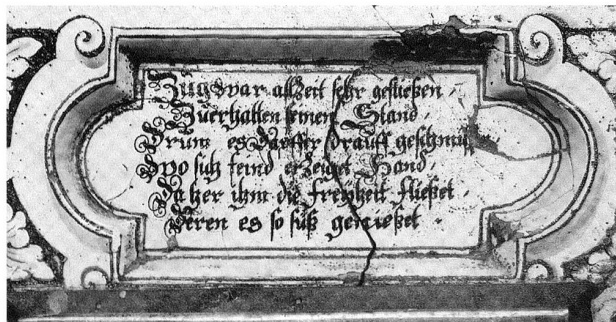 Zug war allzeit sehr gefließen
Zuerhalten seinen Stand
Drum es dapffer drauff geschmißen
Wo sich feind erzeiget Hand
Daher ihm die Freyheit fließet
Deren es so süß genießet